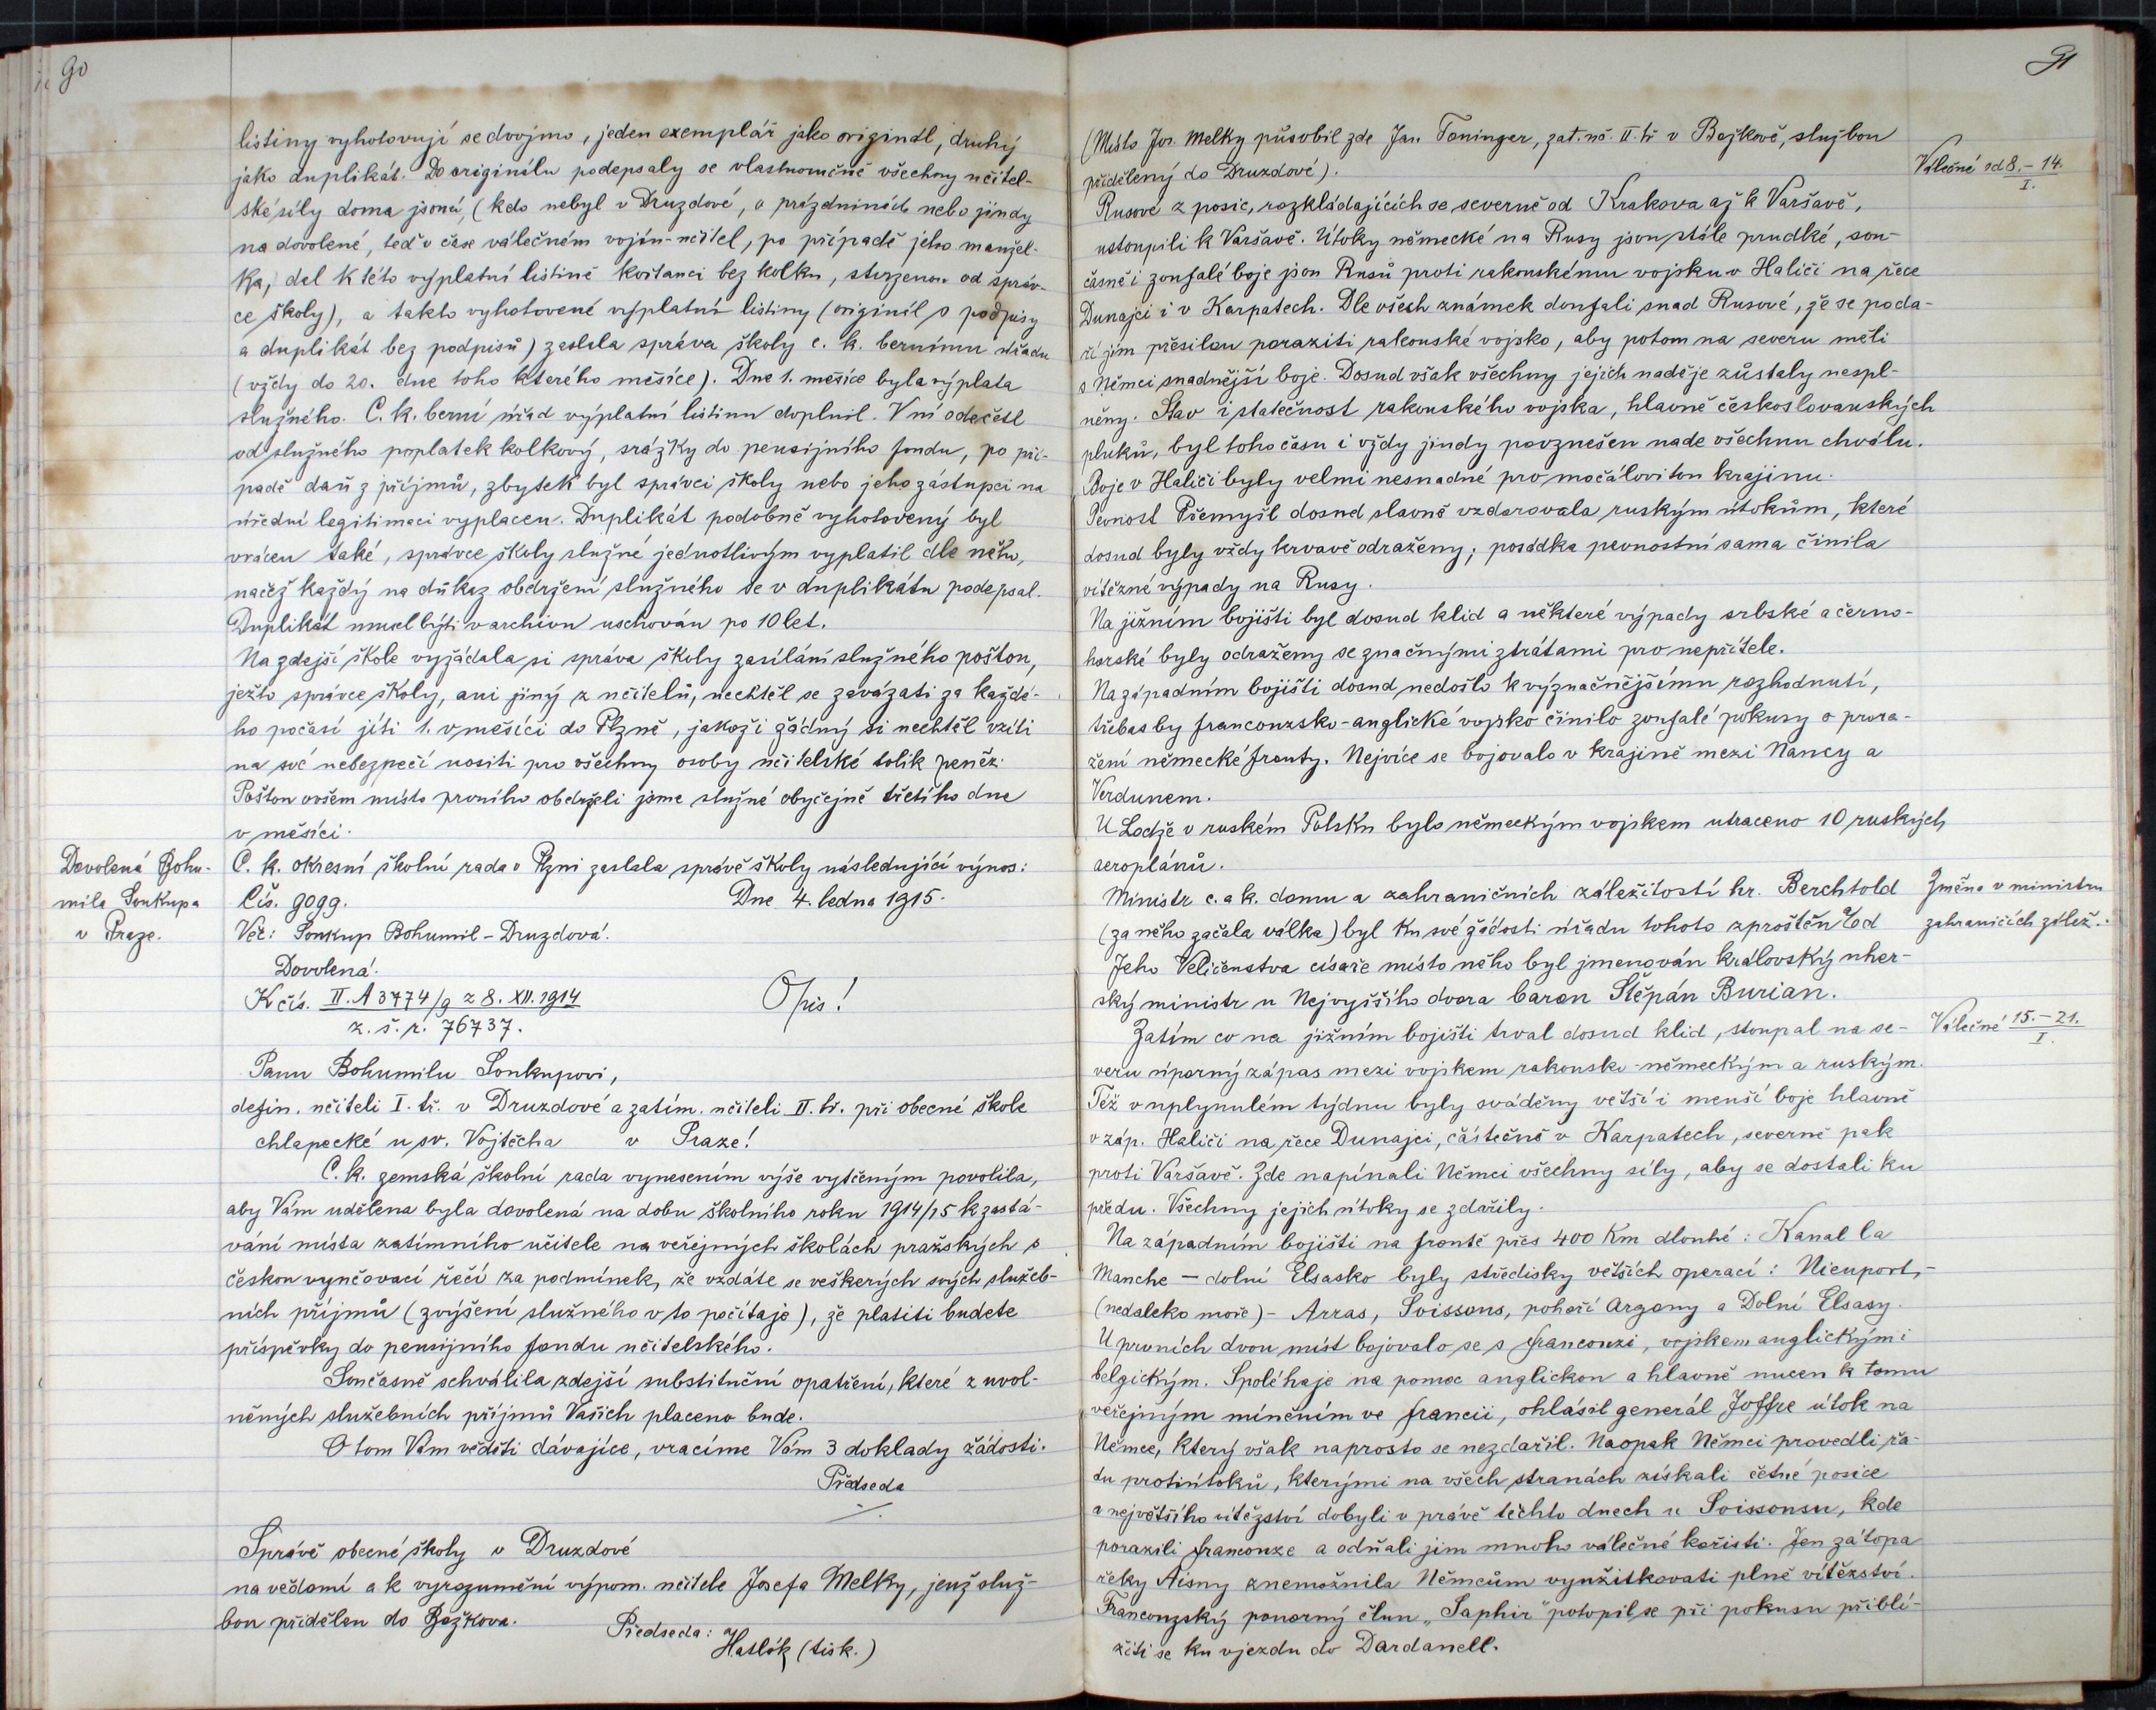 90
listiny vyhotovují se dvojmo, jeden exemplář jako originál, druhý
jako duplikát. Do originálu podepsaly se vlastnoručně všechny učitel-
ské síly doma jsoucí, (kdo nebyl v Druzdové, o prázdninách nebo jindy
na dovolené, teď v čase válečném vojín-učitel, po případě jeho manžel-
ka, dal k této výplatní listině kvitanci bez kolku, stvrzenou od správ-
ce školy), a takto vyhotovené výplatní listiny (originál s podpisy
a duplikát bez podpisů) zaslala správa školy c. k. bernímu úřadu
(vždy do 20. dne toho kterého měsíce). Dne 1. měsíce byla výplata
služného. C. k. berní úřad výplatní listinu doplnil. V ní odečetl
od služného poplatek kolkový, srážky do pensijního fondu, po pří-
padě daň z příjmů, zbytek byl správci školy nebo jeho zástupci na
úřední legitimaci vyplacen. Duplikát podobně vyhotovený byl
vrácen také, správce školy služné jednotlivým vyplatil dle něho,
načež každý na důkaz obdržení služného se v duplikátu podepsal.
Duplikát musel býti v archivu uschován po 10 let.
Na zdejší škole vyžádala si správa školy zasílání služného poštou,
ježto správce školy, ani jiný z učitelů, nechtěl se zavázati za každé-
ho počasí jíti 1. v měsíci do Plzně, jakož i žádný si nechtěl vzíti
na své nebezpečí nositi pro všechny osoby učitelské tolik peněz.
Poštou ovšem místo prvního obdrželi jsme služné obyčejně třetího dne
v měsíci.
Dovolená Bohu-
mila Soukupa
v Praze.
C. k. okresní školní rada v Plzni zaslala správě školy následující výnos:
Čís. 9099. Dne 4. ledna 1915.
Věc: Soukup Bohumil - Druzdová.
Dovolená.
K čís. II. A 3474/9 z 8. XII. 1914 Opis!
z. š. r. 76737.
Panu Bohumilu Soukupovi,
defin. učiteli I. tř. v Druzdové a zatím. učiteli II. tř. při obecné škole
chlapecké u sv. Vojtěcha v Praze!
C. k. zemská školní rada vynesením výše vytčeným povolila,
aby Vám udělena byla dovolená na dobu školního roku 1914/15 k zastá-
vání místa zatímního učitele na veřejných školách pražských s
českou vyučovací řečí za podmínek, že vzdáte se veškerých svých služeb-
ních příjmů (zvýšení služného v to počítaje), že platiti budete
příspěvky do pensijního fondu učitelského.
Současně schválila zdejší substituční opatření, které z uvol-
něných služebních příjmů Vašich placeno bude.
O tom Vám věděti dávajíce, vracíme Vám 3 doklady žádosti.
Předseda
Správě obecné školy v Druzdové
na vědomí a k vyrozumění výpom. učitele Josefa Melky, jenž služ-
bou přidělen do Božkova.
Předseda:
Hatlák (tisk.)
91
(Místo Jos. Melky působil zde Jan Toninger, zat. uč. II. tř v Bojkově, službou
přidělený do Druzdové).
Válečné od 8. - 14.
I.
Rusové z posic, rozkládajících se severně od Krakova až k Varšavě,
ustoupili k Varšavě. Útoky německé na Rusy jsou stále prudké, sou-
časně i zoufalé boje jsou Rusů proti rakouskému vojsku v Haliči na řece
Dunajci i v Karpatech. Dle všech známek doufali snad Rusové, že se poda-
ří jim přesilou poraziti rakouské vojsko, aby potom na severu měli
s Němci snadnější boje. Dosud však všechny jejich naděje zůstaly nespl-
něny. Stav i statečnost rakouského vojska, hlavně československých
pluků, byl toho času i vždy jindy povznešen nade všechnu chválu.
Boje v Haliči byly velmi nesnadné pro močálovitou krajinu.
Pevnost Přemyšl dosud slavně vzdorovala ruským útokům, které
dosud byly vždy krvavě odraženy; posádka pevnostní sama činila
vítězné výpady na Rusy.
Na jižním bojišti byl dosud klid a některé výpady srbské a černo-
horské byly odraženy se značnými ztrátami pro nepřítele.
Na západním bojišti dosud nedošlo k význačnějšímu rozhodnutí,
třebas by francouzsko-anglické vojsko činilo zoufalé pokusy o prora-
žení německé fronty. Nejvíce se bojovalo v krajině mezi Nancy a
Verdunem.
U Lodže v ruském Polsku bylo německým vojskem utraceno 10 ruských
aeroplánů.
Ministr c. a k. domu a zahraničních záležitostí hr. Berchtold
(za něho začala válka) byl ku své žádosti úřadu tohoto zproštěn a od
Změna v ministru
zahraničích zálež.
Jeho Veličenstva císaře místo něho byl jmenován královský uher-
ský ministr u Nejvyššího dvora baron Štěpán Burian.
Zatím co na jižním bojišti trval dosud klid, stoupal na se-
Válečné 15. - 21.
I.
veru úporný zápas mezi vojskem rakousko-německým a ruským.
Též v uplynulém týdnu byly sváděny větší i menší boje hlavně
v záp. Haliči na řece Dunajci, částečně v Karpatech, severně pak
proti Varšavě. Zde napínali Němci všechny síly, aby se dostali ku
předu. Všechny jejich útoky se zdařily.
Na západním bojišti na frontě přes 400 Km dlouhé: Kanal la
Manche - dolní Elsasko byly středisky větších operací: Nieuport,-
(nedaleko moře) - Arras, Soissons, pohoří Argony a Dolní Elsasy.
U prvních dvou míst bojovalo se s francouzi, vojskem anglickým i
belgickým. Spoléhaje na pomoc anglickou a hlavně nucen k tomu
veřejným míněním ve francii, ohlásil generál Joffre útok na
Němce, který však naprosto se nezdařil. Naopak Němci provedli řa-
du protiútoků, kterými na všech stranách získali četné posice
a největšího vítězství dobyli v právě těchto dnech u Soissonsu, kde
porazili francouze a odňali jim mnoho válečné kořisti. Jen zátopa
řeky Aisny znemožnila Němcům využitkovati plně vítězství.
Francouzský ponorný člun "Saphir" potopil se při pokusu přiblí-
žiti se ku vjezdu do Dardanell.